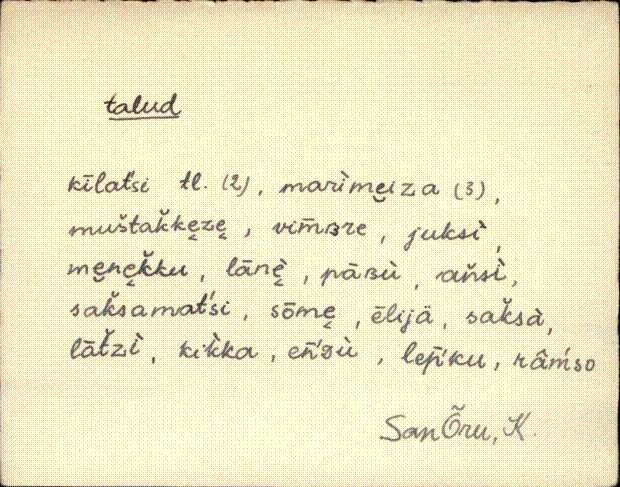 talud
kīlat́si tl. (2), marìme̮iza (3),
muštak̆ke̮ze̮, vim̄ʙre, juksì,
me̮ne̮k̆ku, lānè̮, pāʙù, añsì,
sak̆samat́si, sōme̮, ēlijä, sak̆sà,
lāt̆zì, kik̀ka, eń̄ᴣù, leń̄ku, râḿso
San Õru, K.